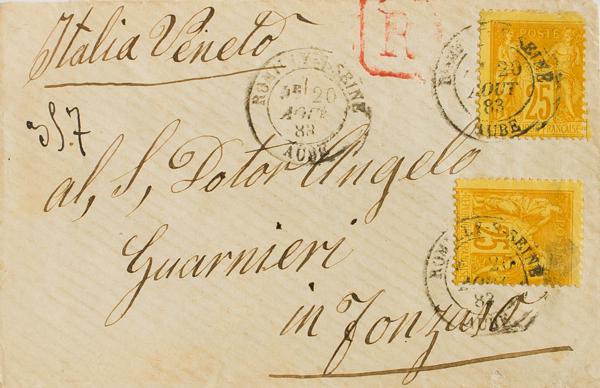 Italia Veneto
R
ROMILLY-S-SEINE
20
AOUT
83
AUBE
POSTE
25
FRANÇAISE
ROMILLY-S-SEINE
20
AOUT
83
AUBE
al, S, Dotor Angelo
Guarnieri
in Fonzaso
25
ROMILLY-S-SEINE
20
83
AUBE